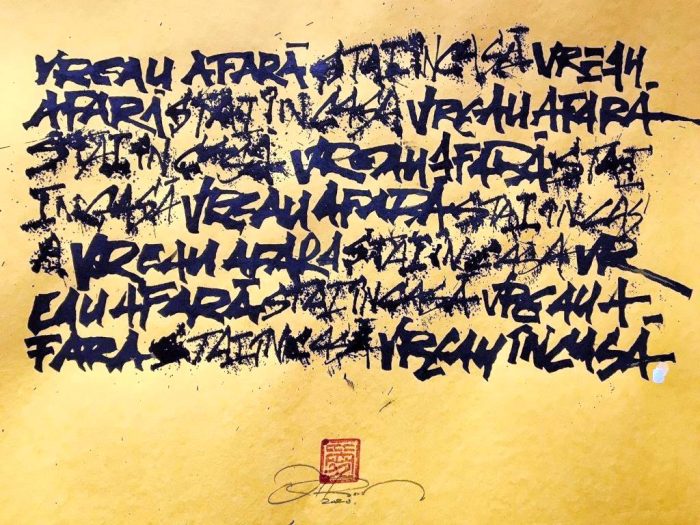 VREAU AFARĂ STAI ÎN CASĂ VREAU
AFARĂ STAI ÎN CASĂ VREAU AFARĂ
STAI ÎN CASĂ VREAU AFARĂ STAI
ÎN CASĂ VREAU AFARĂ STAI ÎN CAS
Ă VREAU AFARĂ STAI ÎN CASĂ VR
EAU AFARĂ STAI ÎN CASĂ VREAU A-
FARĂ STAI ÎN CASĂ VREAU ÎN CASĂ
2020